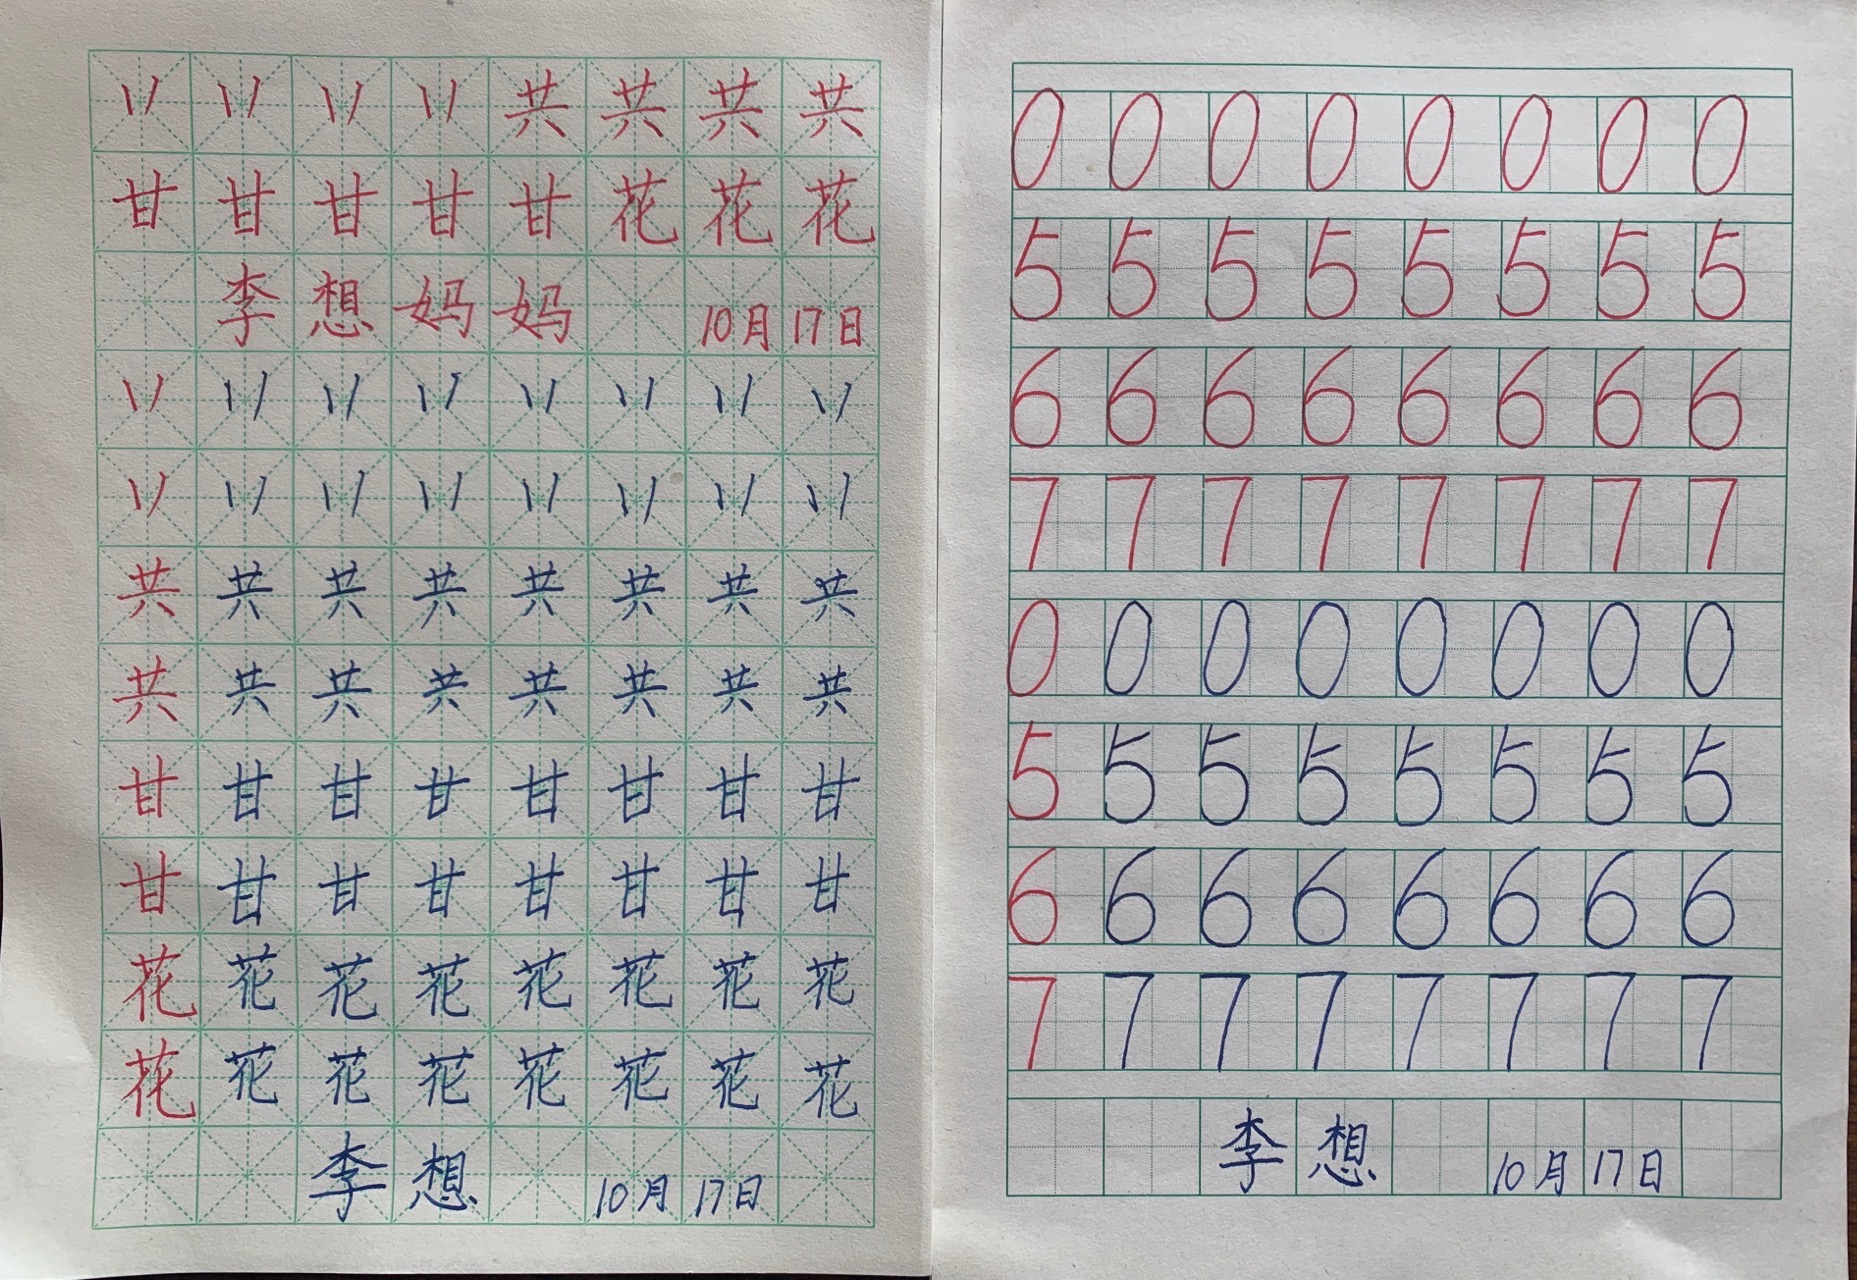 丷 丷 丷 丷 共 共 共 共
甘 甘 甘 甘 甘 花 花 花
李 想 妈 妈 10月 17日
丷 丷 丷 丷 丷 丷 丷 丷
丷 丷 丷 丷 丷 丷 丷 丷
共 共 共 共 共 共 共 共
共 共 共 共 共 共 共 共
甘 甘 甘 甘 甘 甘 甘 甘
甘 甘 甘 甘 甘 甘 甘 甘
花 花 花 花 花 花 花 花
花 花 花 花 花 花 花 花
李 想 10月 17日
0 0 0 0 0 0 0 0
5 5 5 5 5 5 5 5
6 6 6 6 6 6 6 6
7 7 7 7 7 7 7 7
0 0 0 0 0 0 0 0
5 5 5 5 5 5 5 5
6 6 6 6 6 6 6 6
7 7 7 7 7 7 7 7
李 想 10月 17日